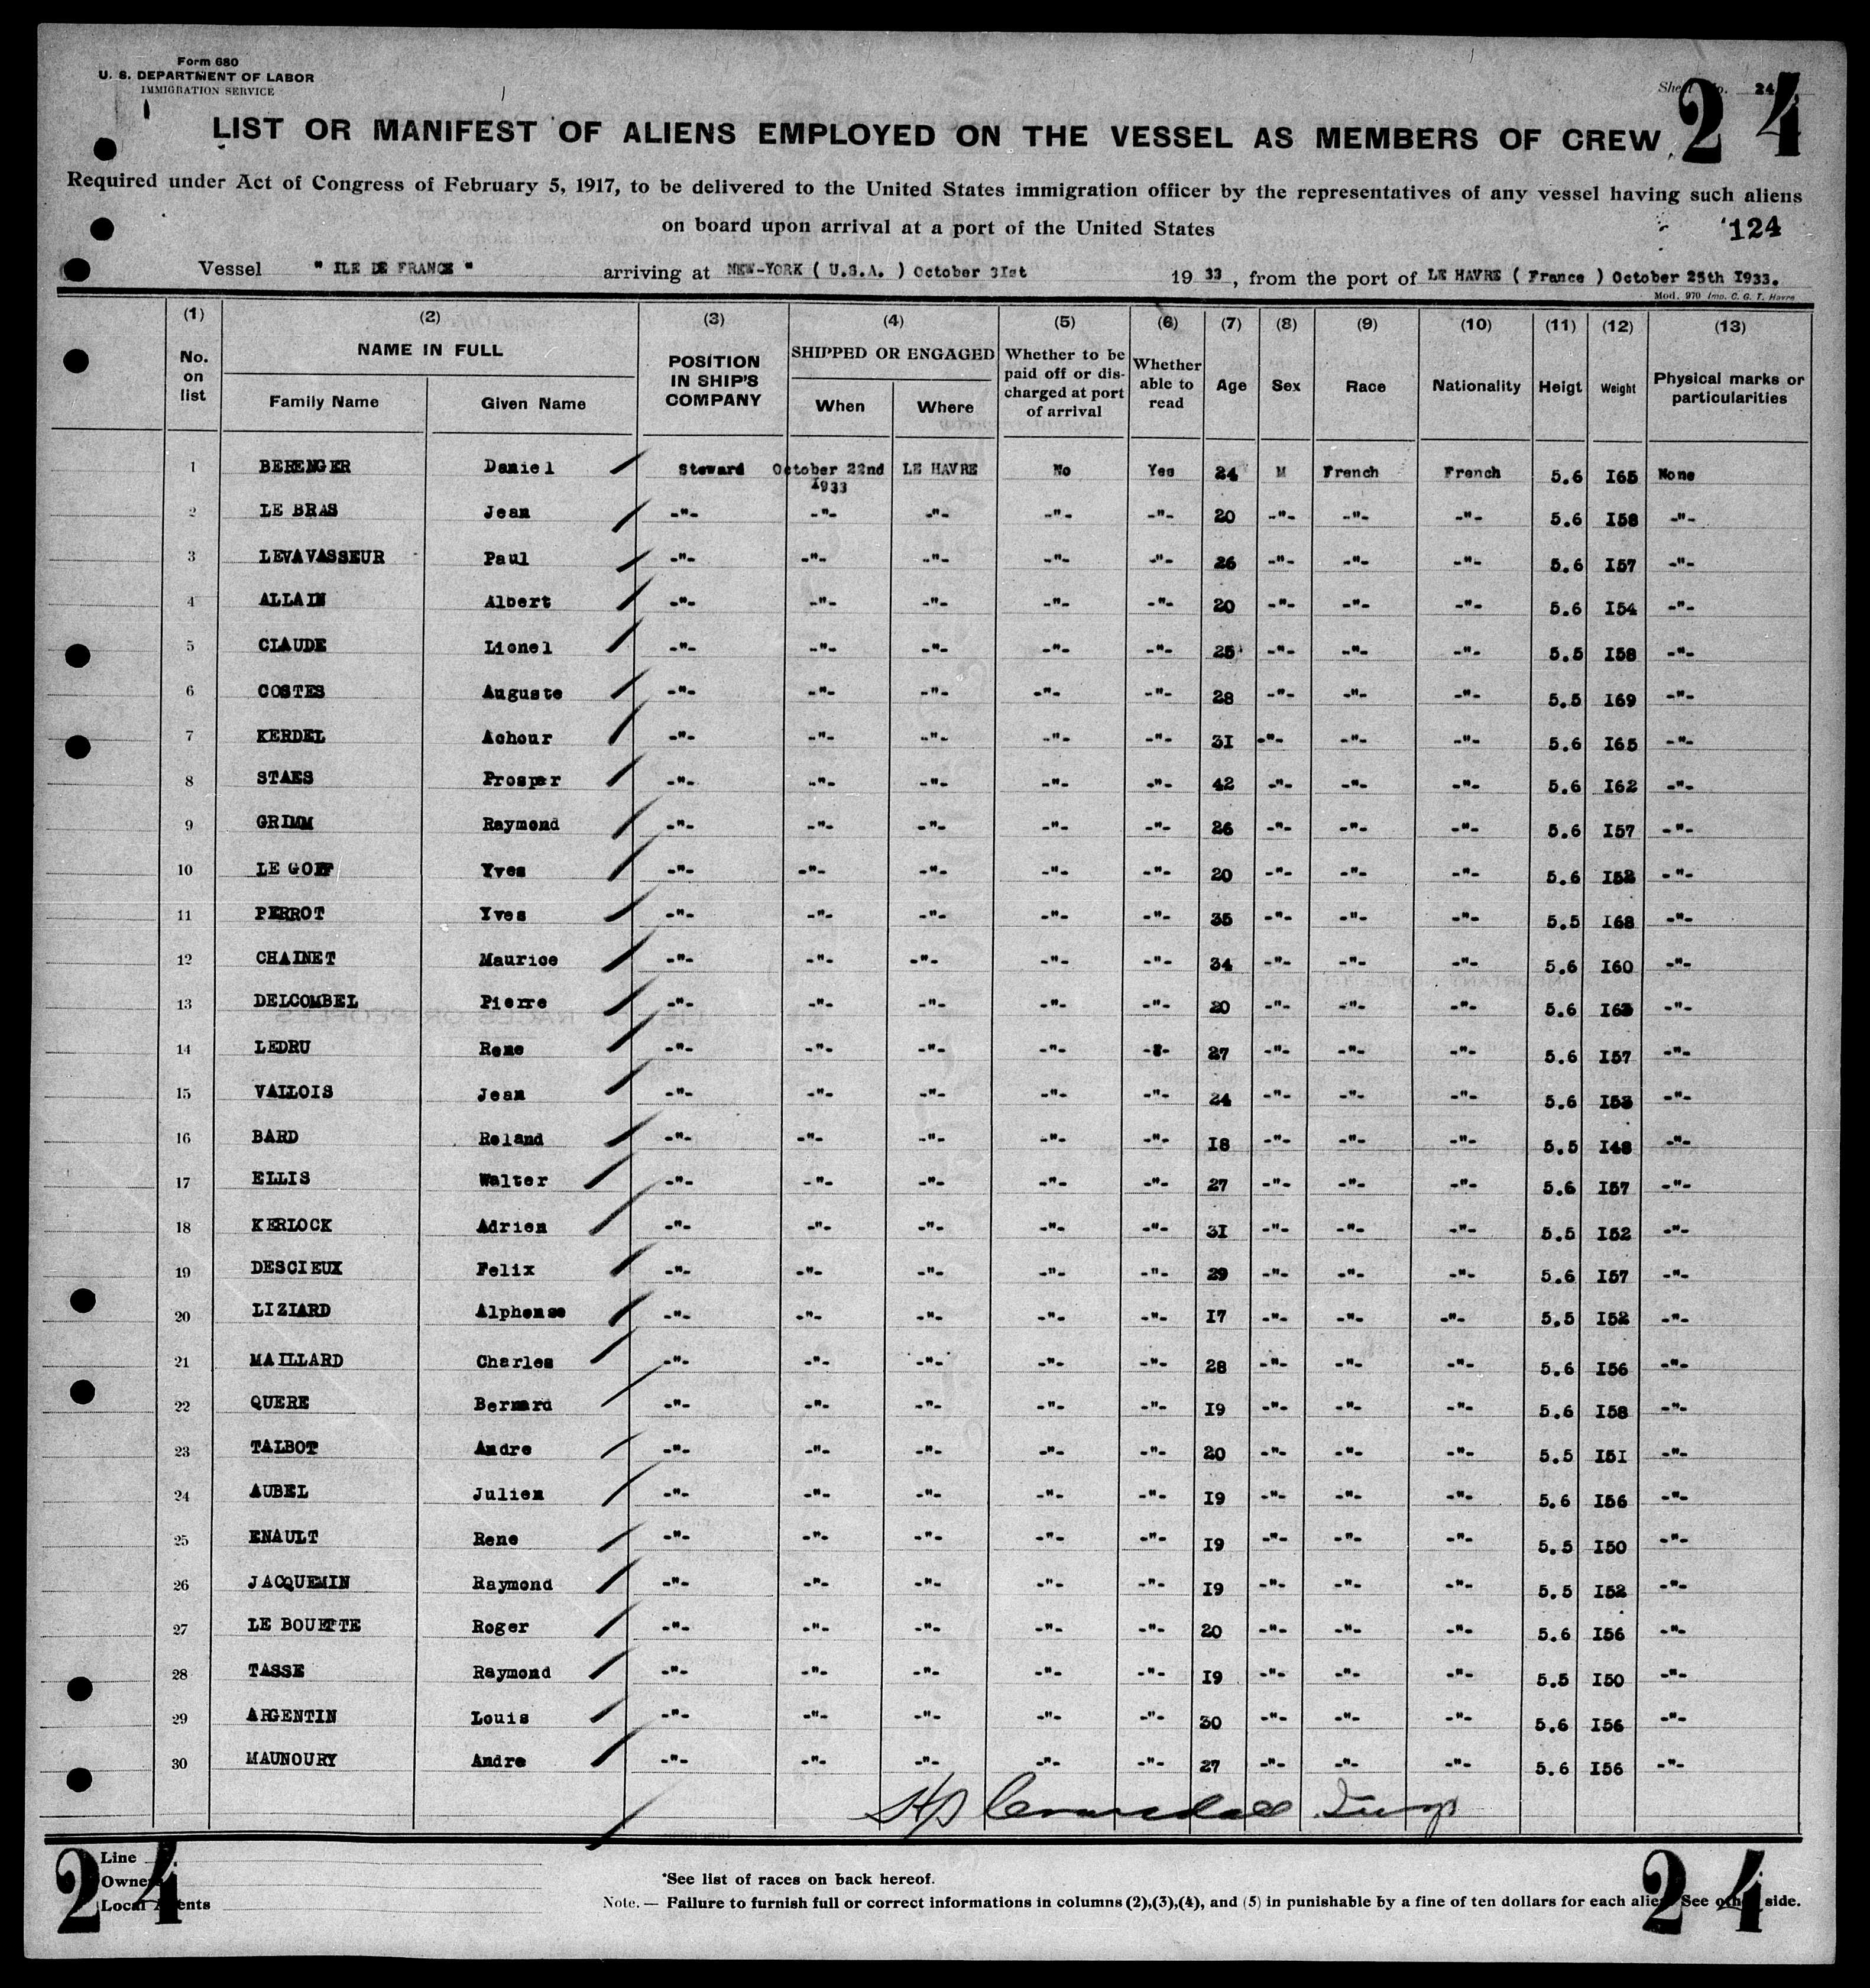 Form 680
U. S. DEPARTMENT OF LABOR
IMMIGRATION SERVICE
Sheet No. 24
24
LIST OR MANIFEST OF ALIENS EMPLOYED ON THE VESSEL AS MEMBERS OF CREW
Required under Act of Congress of February 5, 1917, to be delivered to the United States immigration officer by the representatives of any vessel having such aliens
on board upon arrival at a port of the United States
124
Vessel " ILE DE FRANCE " arriving at NEW-YORK ( U.S.A. ) October 31st 19 33, from the port of LE HAVRE ( France ) October 25th I933.
Mod. 970 Imp. C. G. T. Havre
(1) (2) (3) (4) (5) (6) (7) (8) (9) (10) (11) (12) (13)
No. on list NAME IN FULL Family Name Given Name POSITION IN SHIP'S COMPANY SHIPPED OR ENGAGED When Where Whether to be paid off or discharged at port of arrival Whether able to read Age Sex Race Nationality Heigt Weight Physical marks or particularities
1 BERENGER Daniel Steward October 22nd I933 LE HAVRE No Yes 24 M French French 5.6 I65 None
2 LE BRAS Jean -"- -"- -"- -"- -"- 20 -"- -"- -"- 5.6 I58 -"-
3 LEVAVASSEUR Paul -"- -"- -"- -"- -"- 26 -"- -"- -"- 5.6 I57 -"-
4 ALLAIN Albert -"- -"- -"- -"- -"- 20 -"- -"- -"- 5.6 I54 -"-
5 CLAUDE Lionel -"- -"- -"- -"- -"- 25 -"- -"- -"- 5.5 I58 -"-
6 COSTES Auguste -"- -"- -"- -"- -"- 28 -"- -"- -"- 5.5 I69 -"-
7 KERDEL Achour -"- -"- -"- -"- -"- 3I -"- -"- -"- 5.6 I65 -"-
8 STAES Prosper -"- -"- -"- -"- -"- 42 -"- -"- -"- 5.6 I62 -"-
9 GRIMM Raymond -"- -"- -"- -"- -"- 26 -"- -"- -"- 5.6 I57 -"-
10 LE GOFF Yves -"- -"- -"- -"- -"- 20 -"- -"- -"- 5.6 I52 -"-
11 PERROT Yves -"- -"- -"- -"- -"- 35 -"- -"- -"- 5.5 I68 -"-
12 CHAINET Maurice -"- -"- -"- -"- -"- 34 -"- -"- -"- 5.6 I60 -"-
13 DELCOMBEL Pierre -"- -"- -"- -"- -"- 20 -"- -"- -"- 5.6 I63 -"-
14 LEDRU Rene -"- -"- -"- -"- -"- 27 -"- -"- -"- 5.6 I57 -"-
15 VALLOIS Jean -"- -"- -"- -"- -"- 24 -"- -"- -"- 5.6 I53 -"-
16 BARD Roland -"- -"- -"- -"- -"- I8 -"- -"- -"- 5.5 I48 -"-
17 ELLIS Walter -"- -"- -"- -"- -"- 27 -"- -"- -"- 5.6 I57 -"-
18 KERLOCK Adrien -"- -"- -"- -"- -"- 3I -"- -"- -"- 5.5 I52 -"-
19 DESCIEUX Felix -"- -"- -"- -"- -"- 29 -"- -"- -"- 5.6 I57 -"-
20 LIZIARD Alphonse -"- -"- -"- -"- -"- I7 -"- -"- -"- 5.5 I52 -"-
21 MAILLARD Charles -"- -"- -"- -"- -"- 28 -"- -"- -"- 5.6 I56 -"-
22 QUERE Bernard -"- -"- -"- -"- -"- I9 -"- -"- -"- 5.6 I58 -"-
23 TALBOT Andre -"- -"- -"- -"- -"- 20 -"- -"- -"- 5.5 I5I -"-
24 AUBEL Julien -"- -"- -"- -"- -"- I9 -"- -"- -"- 5.6 I56 -"-
25 ENAULT Rene -"- -"- -"- -"- -"- I9 -"- -"- -"- 5.5 I50 -"-
26 JACQUEMIN Raymond -"- -"- -"- -"- -"- I9 -"- -"- -"- 5.5 I52 -"-
27 LE BOUETTE Roger -"- -"- -"- -"- -"- 20 -"- -"- -"- 5.6 I56 -"-
28 TASSE Raymond -"- -"- -"- -"- -"- I9 -"- -"- -"- 5.5 I50 -"-
29 ARGENTIN Louis -"- -"- -"- -"- -"- 30 -"- -"- -"- 5.6 I56 -"-
30 MAUNOURY Andre -"- -"- -"- -"- -"- 27 -"- -"- -"- 5.6 I56 -"-
24
24
Line
Owners
Local Agents
*See list of races on back hereof.
Note. — Failure to furnish full or correct informations in columns (2),(3),(4), and (5) in punishable by a fine of ten dollars for each alien. See other side.